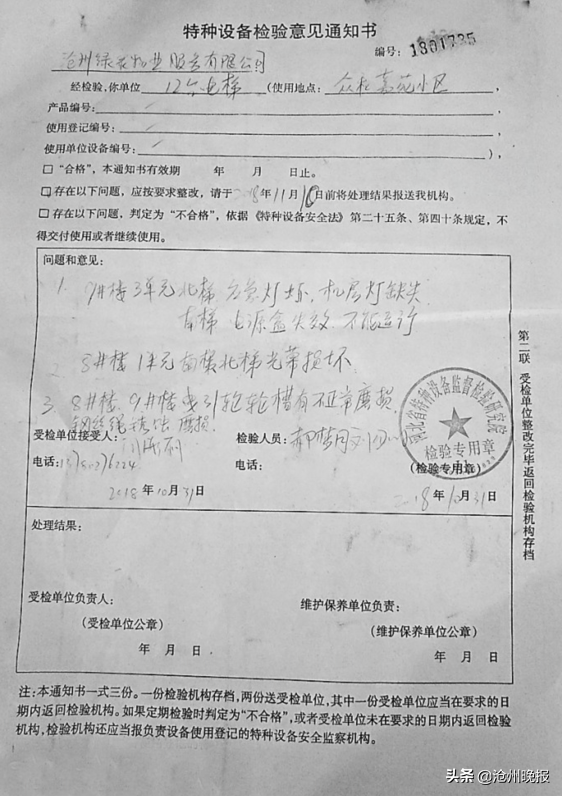 特种设备检验意见通知书
编号：1801735
沧州绿农物业服务有限公司
经检验，你单位 12台电梯 （使用地点：众杜嘉苑小区
产品编号：
使用登记编号：
使用单位设备编号： ），
□“合格”，本通知书有效期 年 月 日止。
□存在以下问题，应按要求整改，请于 18年11月10日前将处理结果报送我机构。
□存在以下问题，判定为“不合格”，依据《特种设备安全法》第二十五条、第四十条规定，不
得交付使用或者继续使用。
问题和意见：
1. 9#楼3单元北梯 应急灯坏，机房灯缺失
南梯 电源盒失效 不能运行
2 8#楼1单元南梯北梯光幕损坏
3. 8#楼、9#楼曳引轮轮槽有不正常磨损
钢丝绳锈蚀磨损
受检单位接受人：
检验人员：
电话：
电话：
（检验专用章）
2018年10月31日
2018年10月31日
河北省特种设备监督检验研究院
检验专用章
处理结果：
受检单位负责人：
维护保养单位负责：
（受检单位公章）
（维护保养单位公章）
年 月 日
年 月 日
第二联 受检单位整改完毕返回检验机构存档
注：本通知书一式三份。一份检验机构存档，两份送受检单位，其中一份受检单位应当在要求的日
期内返回检验机构。如果定期检验时判定为“不合格”，或者受检单位未在要求的日期内返回检验
机构，检验机构还应当报负责设备使用登记的特种设备安全监察机构。
头条@沧州晚报